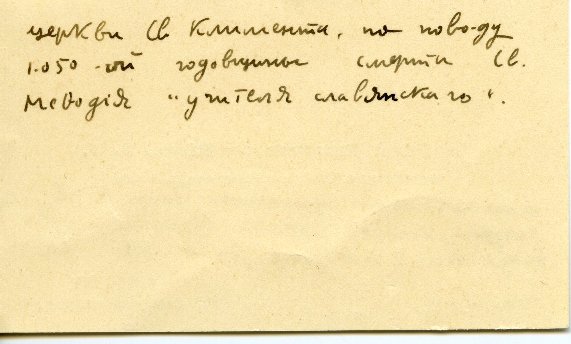 церкви Св Климента, по пово-ду
1.050-ой годовщины смерти Св.
Меѳодія "учителя славянскаго".